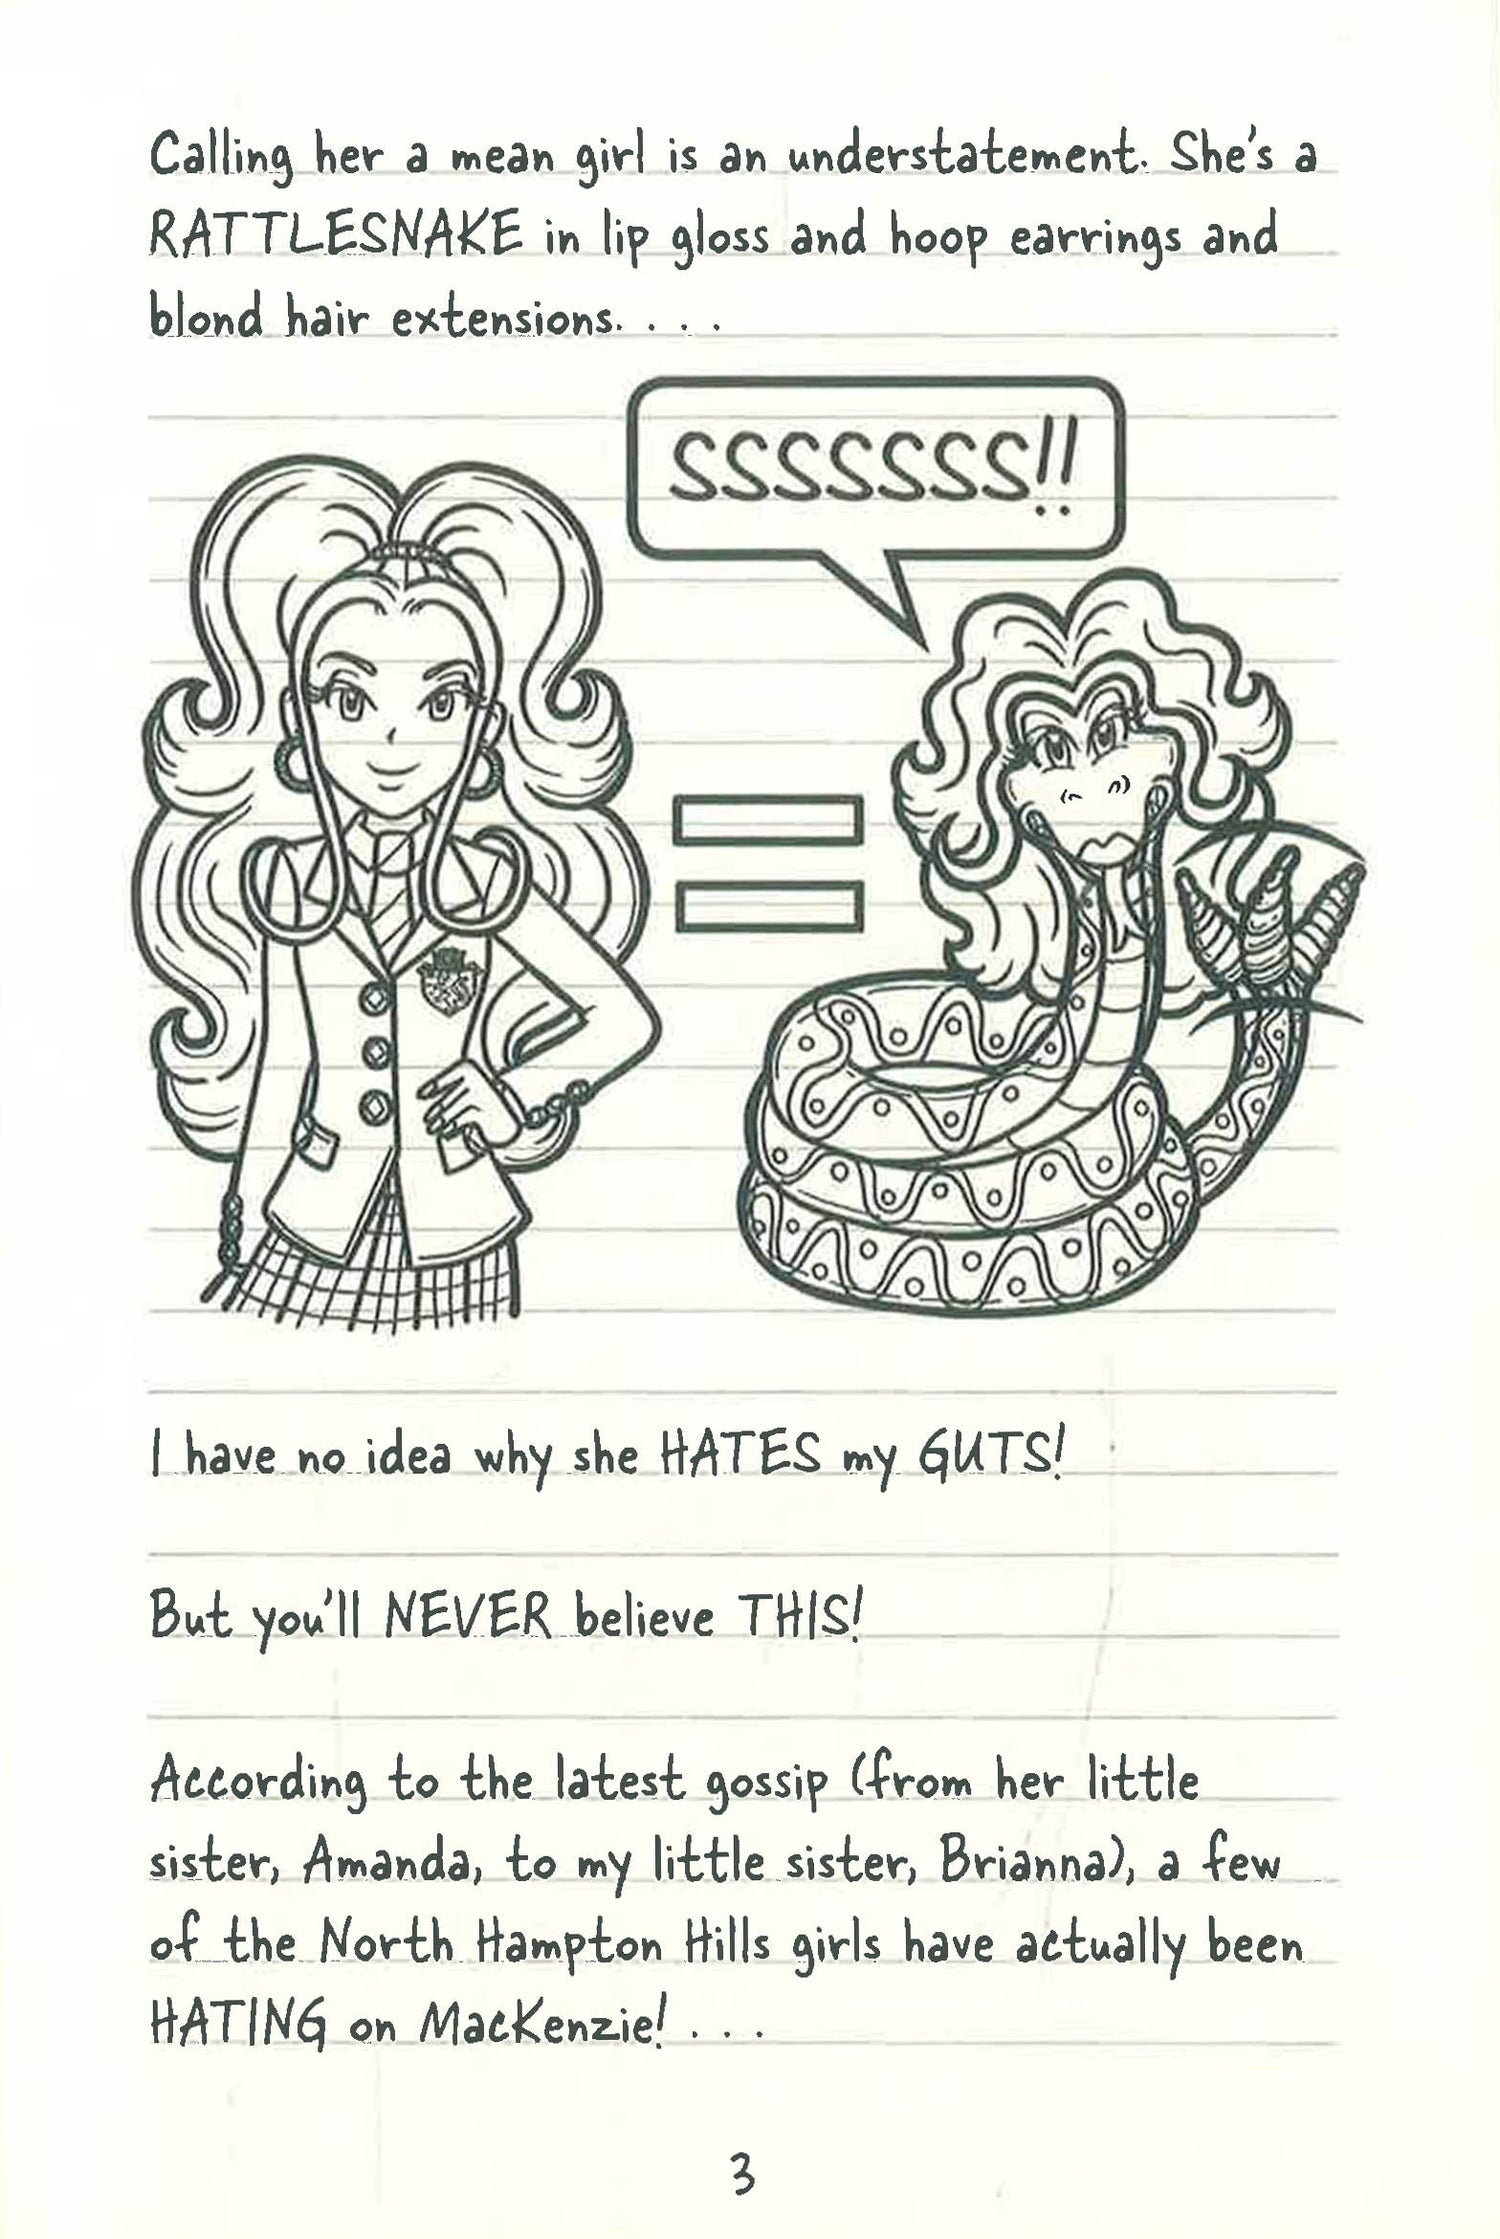 Calling her a mean girl is an understatement. She's a
RATTLESNAKE in lip gloss and hoop earrings and
blond hair extensions. . . .
SSSSSSS!!
I have no idea why she HATES my GUTS!
But you'll NEVER believe THIS!
According to the latest gossip (from her little
sister, Amanda, to my little sister, Brianna), a few
of the North Hampton Hills girls have actually been
HATING on MacKenzie! . . .
3